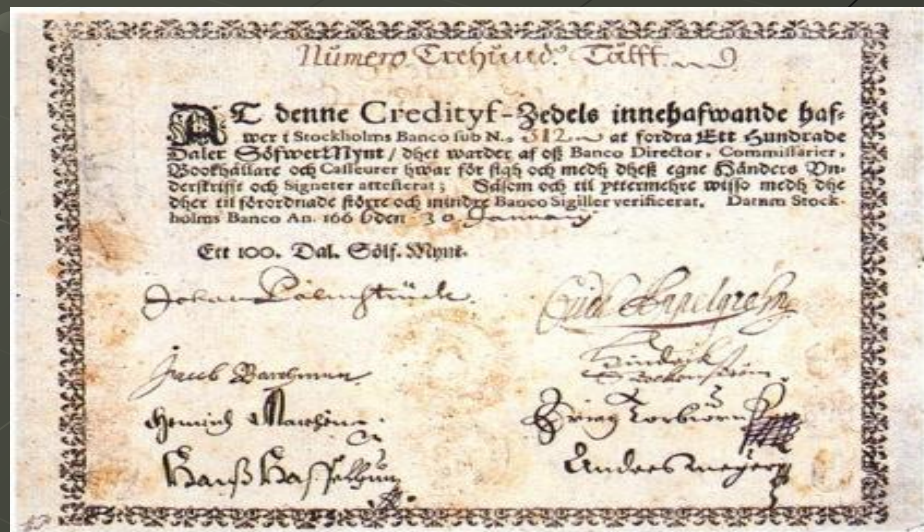 Numero Trehund.ᵃ Tålff
AT denne Credityf-Zedels innehafwande haf-
wer i Stockholms Banco sub N.o 312 at fordra Ett Hundrade
Daler SölfwerMynt / dhet warder af oß Banco Director, Commissarier,
Bookhållare och Casseurer hwar för sigh och medh dheß egne Händers Vn-
derskrifft och Signeter attesterat; Såsom och til yttermehre wisso medh dhe
dher til förordnade större och mindre Banco Sigiller verificerat. Datum Stock-
holms Banco An. 1666 den 30 January
Ett 100. Dal. Sölf. Mynt.
Johan Palmstruck.
Jacob Barchman
Hindrich
Anders meijer